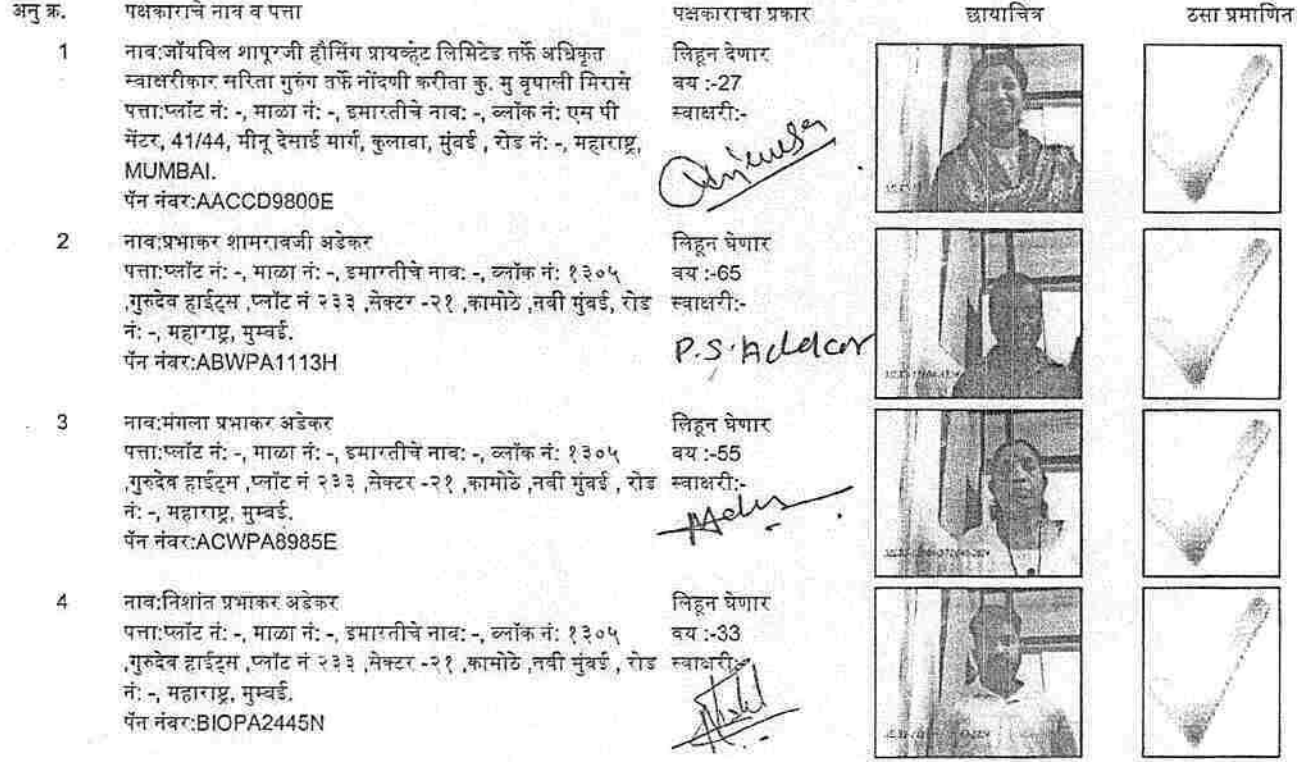 अनु क्र. पक्षकाराचे नाव व पत्ता पक्षकाराचा प्रकार छायाचित्र ठसा प्रमाणित
1 नाव:जॉयविल शापूरजी हौसिंग प्रायव्हेट लिमिटेड तर्फे अधिकृत
स्वाक्षरीकार सरिता गुरुंग तर्फे नोंदणी करीता कु. मु वृषाली मिरासे
पत्ता:प्लॉट नं: -, माळा नं: -, इमारतीचे नाव: -, ब्लॉक नं: एस पी
सेंटर, 41/44, मीनू देसाई मार्ग, कुलाबा, मुंबई , रोड नं: -, महाराष्ट्र,
MUMBAI.
पॅन नंबर:AACCD9800E
लिहून देणार
वय :-27
स्वाक्षरी:-
2 नाव:प्रभाकर शामरावजी अडेकर
पत्ता:प्लॉट नं: -, माळा नं: -, इमारतीचे नाव: -, ब्लॉक नं: १३०५
,गुरुदेव हाईट्स ,प्लॉट नं २३३ ,सेक्टर -२१ ,कामोठे ,नवी मुंबई, रोड
नं: -, महाराष्ट्र, मुम्बई.
पॅन नंबर:ABWPA1113H
लिहून घेणार
वय :-65
स्वाक्षरी:-
P.S. Adekar
3 नाव:मंगला प्रभाकर अडेकर
पत्ता:प्लॉट नं: -, माळा नं: -, इमारतीचे नाव: -, ब्लॉक नं: १३०५
,गुरुदेव हाईट्स ,प्लॉट नं २३३ ,सेक्टर -२१ ,कामोठे ,नवी मुंबई , रोड
नं: -, महाराष्ट्र, मुम्बई.
पॅन नंबर:ACWPA8985E
लिहून घेणार
वय :-55
स्वाक्षरी:-
4 नाव:निशांत प्रभाकर अडेकर
पत्ता:प्लॉट नं: -, माळा नं: -, इमारतीचे नाव: -, ब्लॉक नं: १३०५
,गुरुदेव हाईट्स ,प्लॉट नं २३३ ,सेक्टर -२१ ,कामोठे ,नवी मुंबई , रोड
नं: -, महाराष्ट्र, मुम्बई.
पॅन नंबर:BIOPA2445N
लिहून घेणार
वय :-33
स्वाक्षरी:-